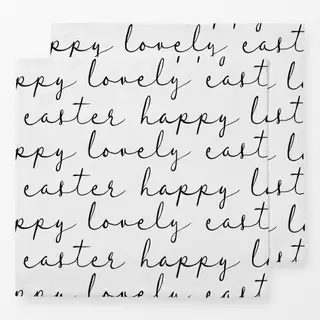 ppy lovely east
ppy lovely east
easter happy l
ppy lovely east
easter happy l
ppy lovely east
easter happy l
ppy lovely east
easter happy l